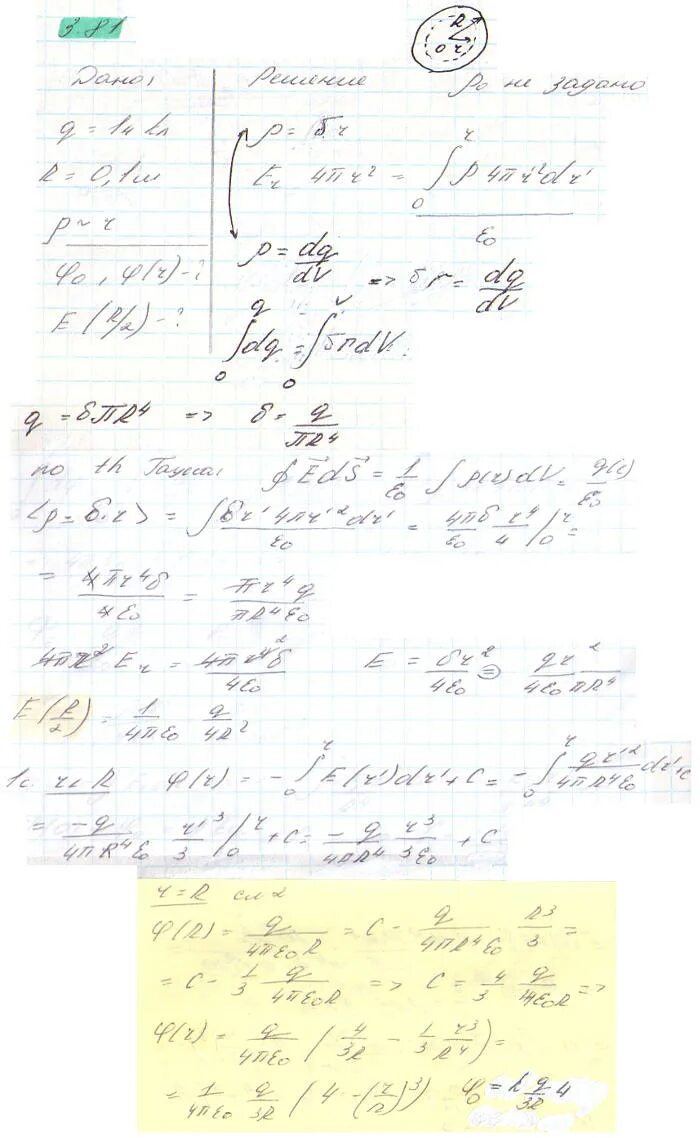 3.81
R
0 r
Дано:
Решение
ρ₀ не задано
q = 1н Кл
R = 0,1м
ρ ~ r
φ₀, φ(r) - ?
E (R/2) - ?
ρ = δr
Er 4πr² = ∫₀^r ρ 4πr'²dr' / ε₀
ρ = dq/dV => δr = dq/dV
∫₀^q dq = ∫₀^V δr dV
q = δπR⁴ => δ = q/πR⁴
по th Гаусса: ∮E⃗dS⃗ = 1/ε₀ ∫ρ(r)dV = q(r)/ε₀
<ρ = δ·r> = ∫δr' 4πr'² dr' / ε₀ = 4πδ/ε₀ r⁴/4 |₀^r =
= 4πr⁴δ / 4ε₀ = πr⁴q / πR⁴ε₀
4πr² Er = 4πr⁴δ / 4ε₀
E = δr²/4ε₀ = qr² / 4ε₀πR⁴
E(R/2) = 1/4πε₀ q/4R²
1с. r < R φ(r) = -∫₀^r E(r')dr' + C = -∫₀^r qr'²/4πR⁴ε₀ dr' + C
= -q/4πR⁴ε₀ r'³/3 |₀^r + C = -q/4πR⁴ r³/3ε₀ + C
r = R сл 2
φ(R) = q/4πε₀R = C - q/4πR⁴ε₀ R³/3 =
= C - 1/3 q/4πε₀R => C = 4/3 q/4πε₀R =>
φ(r) = q/4πε₀ (4/3R - 1/3 r³/R⁴) =
= 1/4πε₀ q/3R (4 - (r/R)³) φ₀ = k q/3R 4